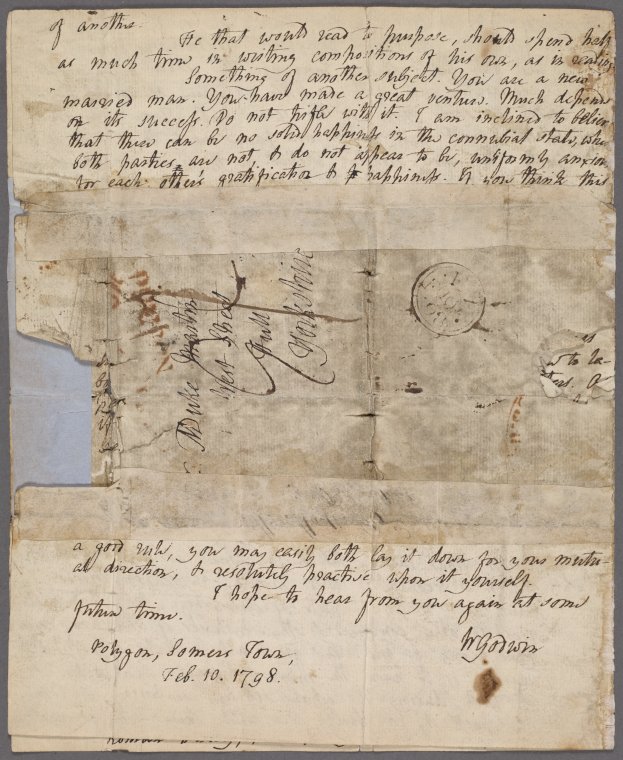 of another.
He that would read to purpose, should spend half
as much time in writing compositions of his own, as in reading
Something of another subject. You are a new
married man. You have made a great venture. Much depends
on its success. Do not trifle with it. I am inclined to believe
that there can be no solid happiness in the connubial state, where
both parties are not, & do not appear to be, uniformly anxious
for each other's gratification & happiness. If you think this
Duke
West Street
Hull
Yorkshire
w to la
a good rule, you may easily both lay it down for your mutu-
al direction, & resolutely practise upon it yourself.
I hope to hear from you again at some
future time.
WGodwin
Polygon, Somers Town,
Feb. 10. 1798.